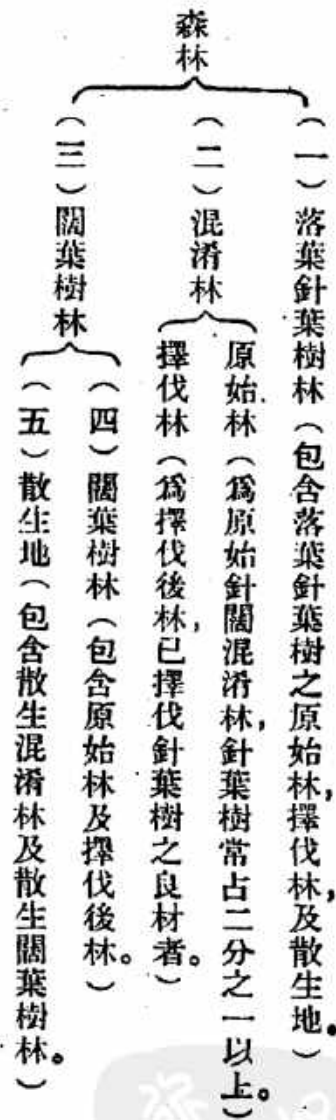 森林
（一）落葉針葉樹林（包含落葉針葉樹之原始林，擇伐林，及散生地。）
（二）混淆林
原始林（爲原始針闊混淆林，針葉樹常占二分之一以上。）
擇伐林（爲擇伐後林，已擇伐針葉樹之良材者。）
（三）闊葉樹林
（四）闊葉樹林（包含原始林及擇伐後林。）
（五）散生地（包含散生混淆林及散生闊葉樹林。）